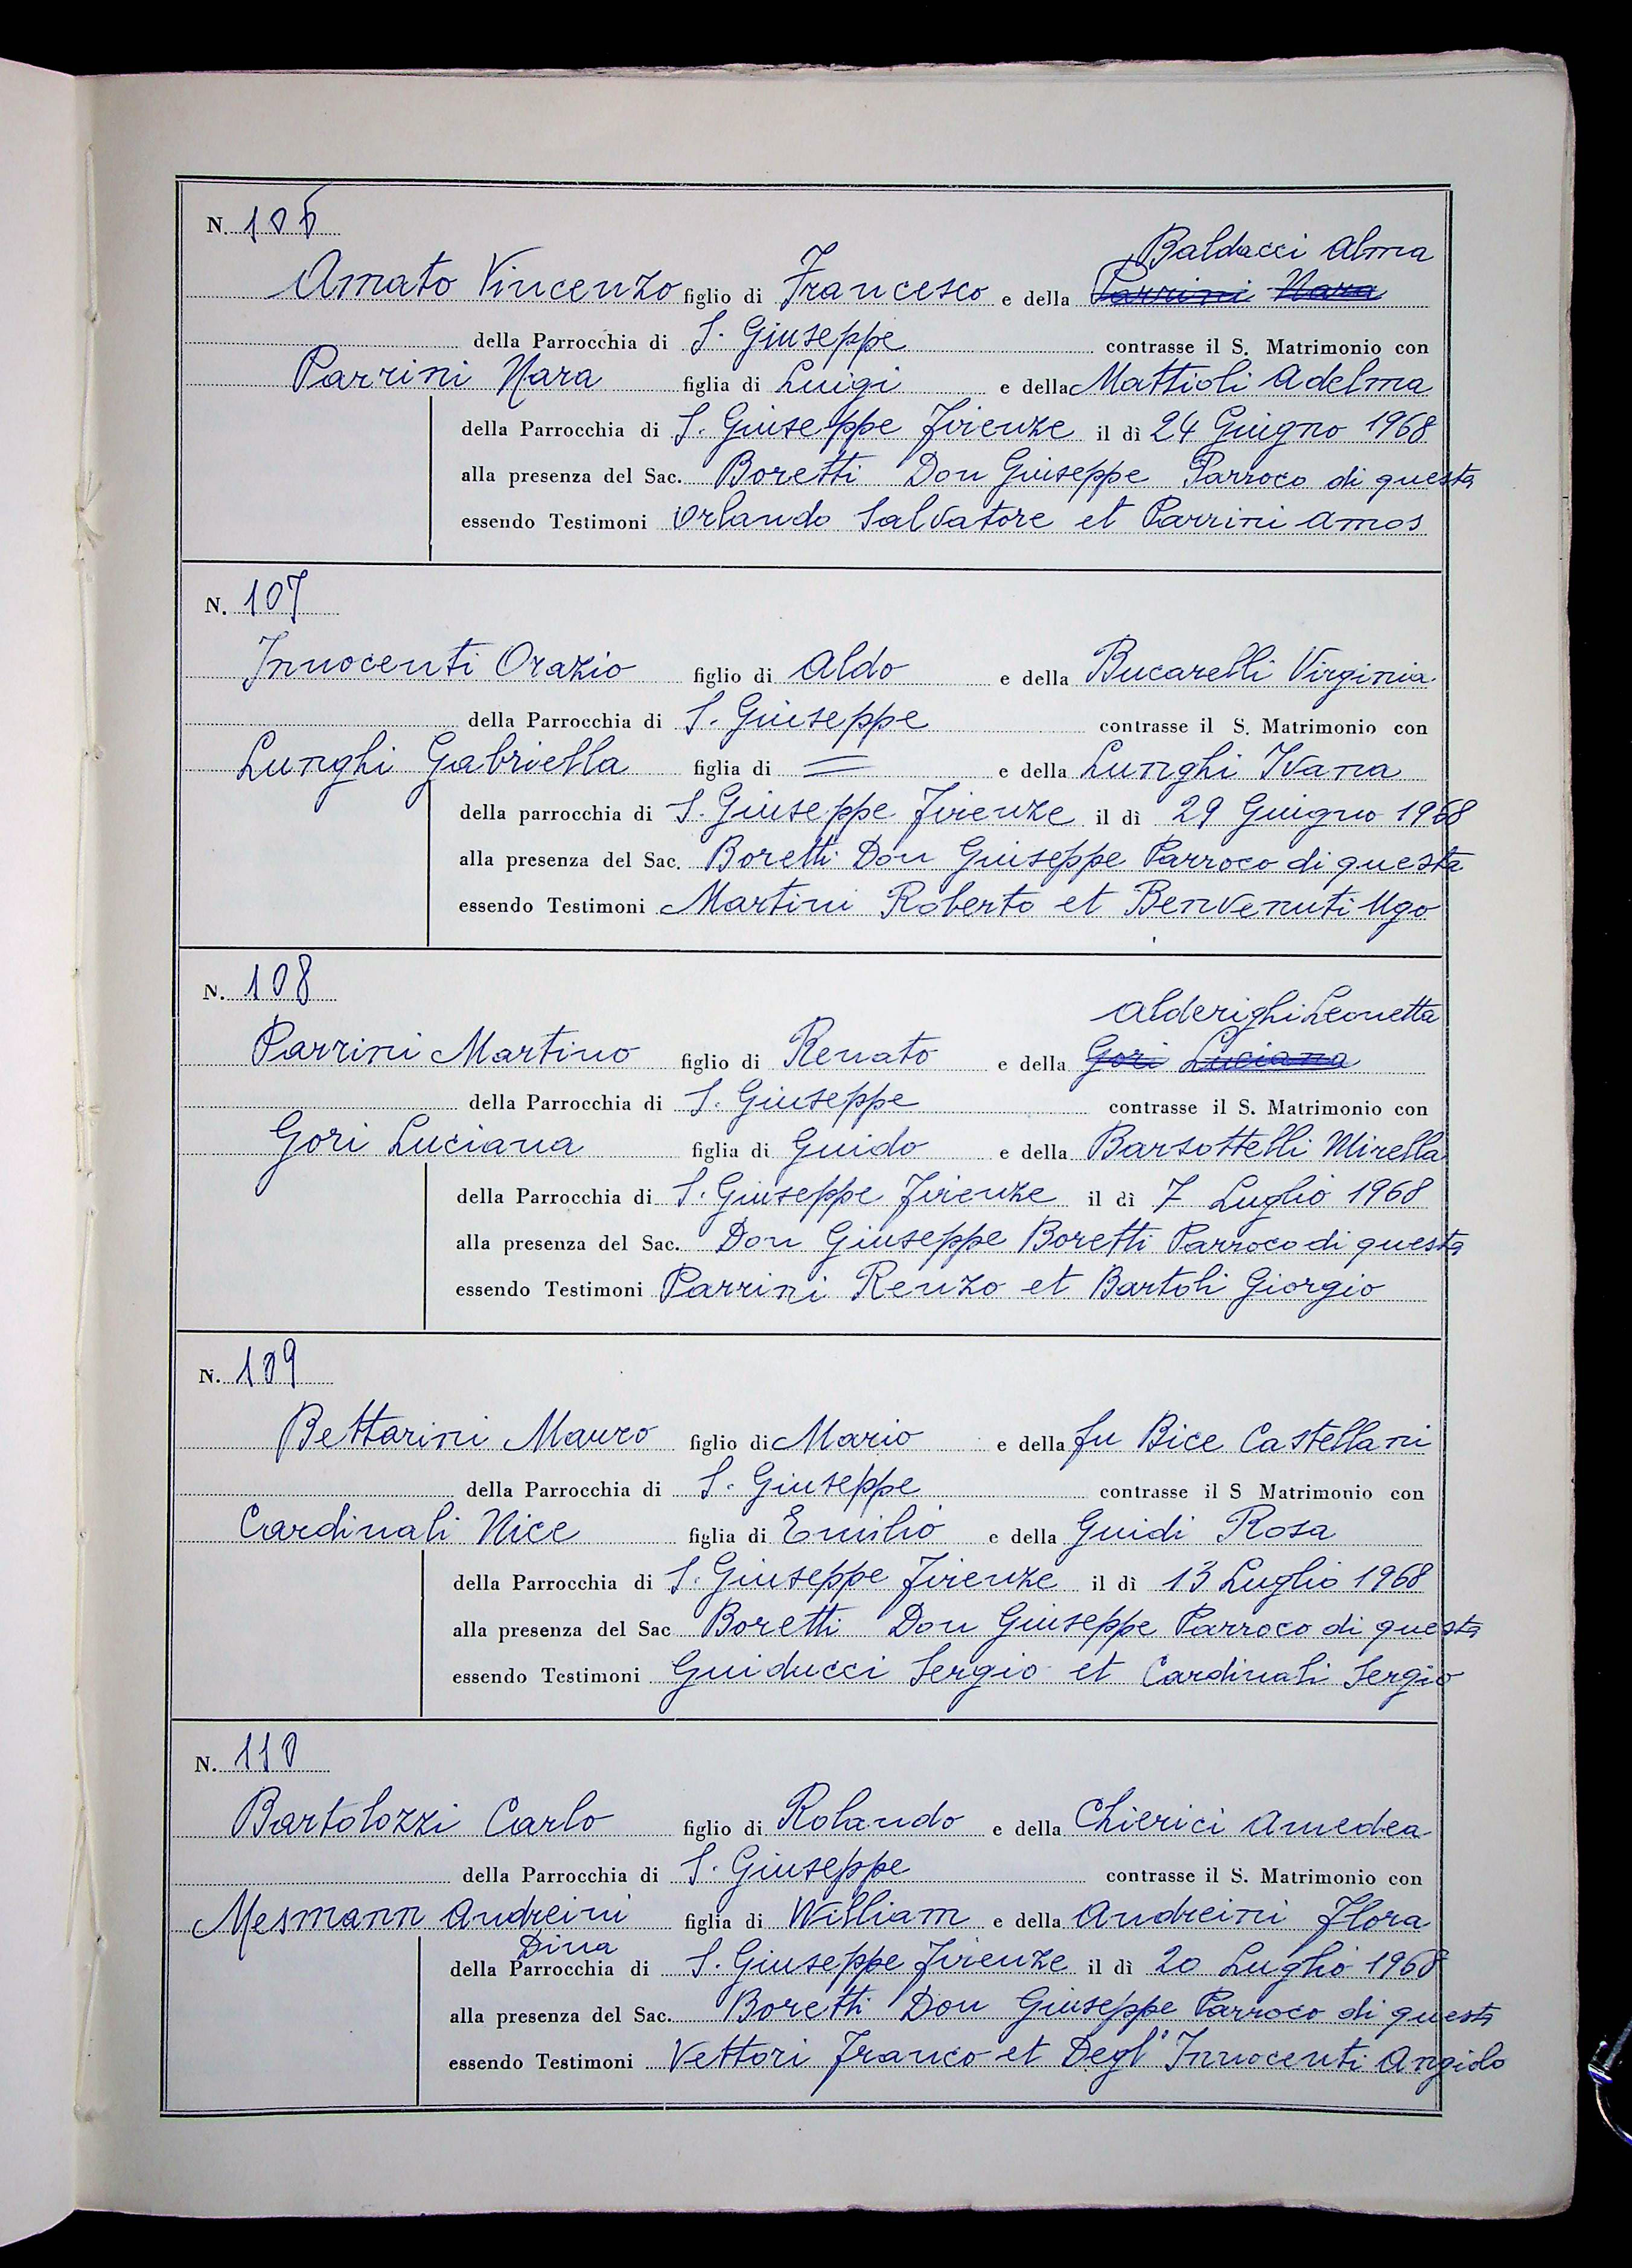 N. 106
Baldacci Alma
Amato Vincenzo figlio di Francesco e della Parrini Nara
della Parrocchia di S. Giuseppe contrasse il S. Matrimonio con
Parrini Nara figlia di Luigi e della Mattioli Adelma
della Parrocchia di S. Giuseppe Firenze il dì 24 Giugno 1968
alla presenza del Sac. Boretti Don Giuseppe Parroco di questa
essendo Testimoni Orlando Salvatore et Parrini Amos
N. 107
Innocenti Orazio figlio di Aldo e della Bucarelli Virginia
della Parrocchia di S. Giuseppe contrasse il S. Matrimonio con
Lunghi Gabriella figlia di = e della Lunghi Ivana
della parrocchia di S. Giuseppe Firenze il dì 29 Giugno 1968
alla presenza del Sac. Boretti Don Giuseppe Parroco di questa
essendo Testimoni Martini Roberto et Benvenuti Ugo
N. 108
Alderighi Leonetta
Parrini Martino figlio di Renato e della Gori Luciana
della Parrocchia di S. Giuseppe contrasse il S. Matrimonio con
Gori Luciana figlia di Guido e della Barsottelli Mirella
della Parrocchia di S. Giuseppe Firenze il dì 7 Luglio 1968
alla presenza del Sac. Don Giuseppe Boretti Parroco di questa
essendo Testimoni Parrini Renzo et Bartoli Giorgio
N. 109
Bettarini Mauro figlio di Mario e della fu Bice Castellani
della Parrocchia di S. Giuseppe contrasse il S Matrimonio con
Cardinali Nice figlia di Emilio e della Guidi Rosa
della Parrocchia di S. Giuseppe Firenze il dì 13 Luglio 1968
alla presenza del Sac Boretti Don Giuseppe Parroco di questa
essendo Testimoni Guiducci Sergio et Cardinali Sergio
N. 110
Bartolozzi Carlo figlio di Rolando e della Chierici Amedea
della Parrocchia di S. Giuseppe contrasse il S. Matrimonio con
Mesmann Andreini figlia di William e della Andreini Flora
Dina
della Parrocchia di S. Giuseppe Firenze il dì 20 Luglio 1968
alla presenza del Sac. Boretti Don Giuseppe Parroco di questa
essendo Testimoni Vettori Franco et Degl'Innocenti Angiolo